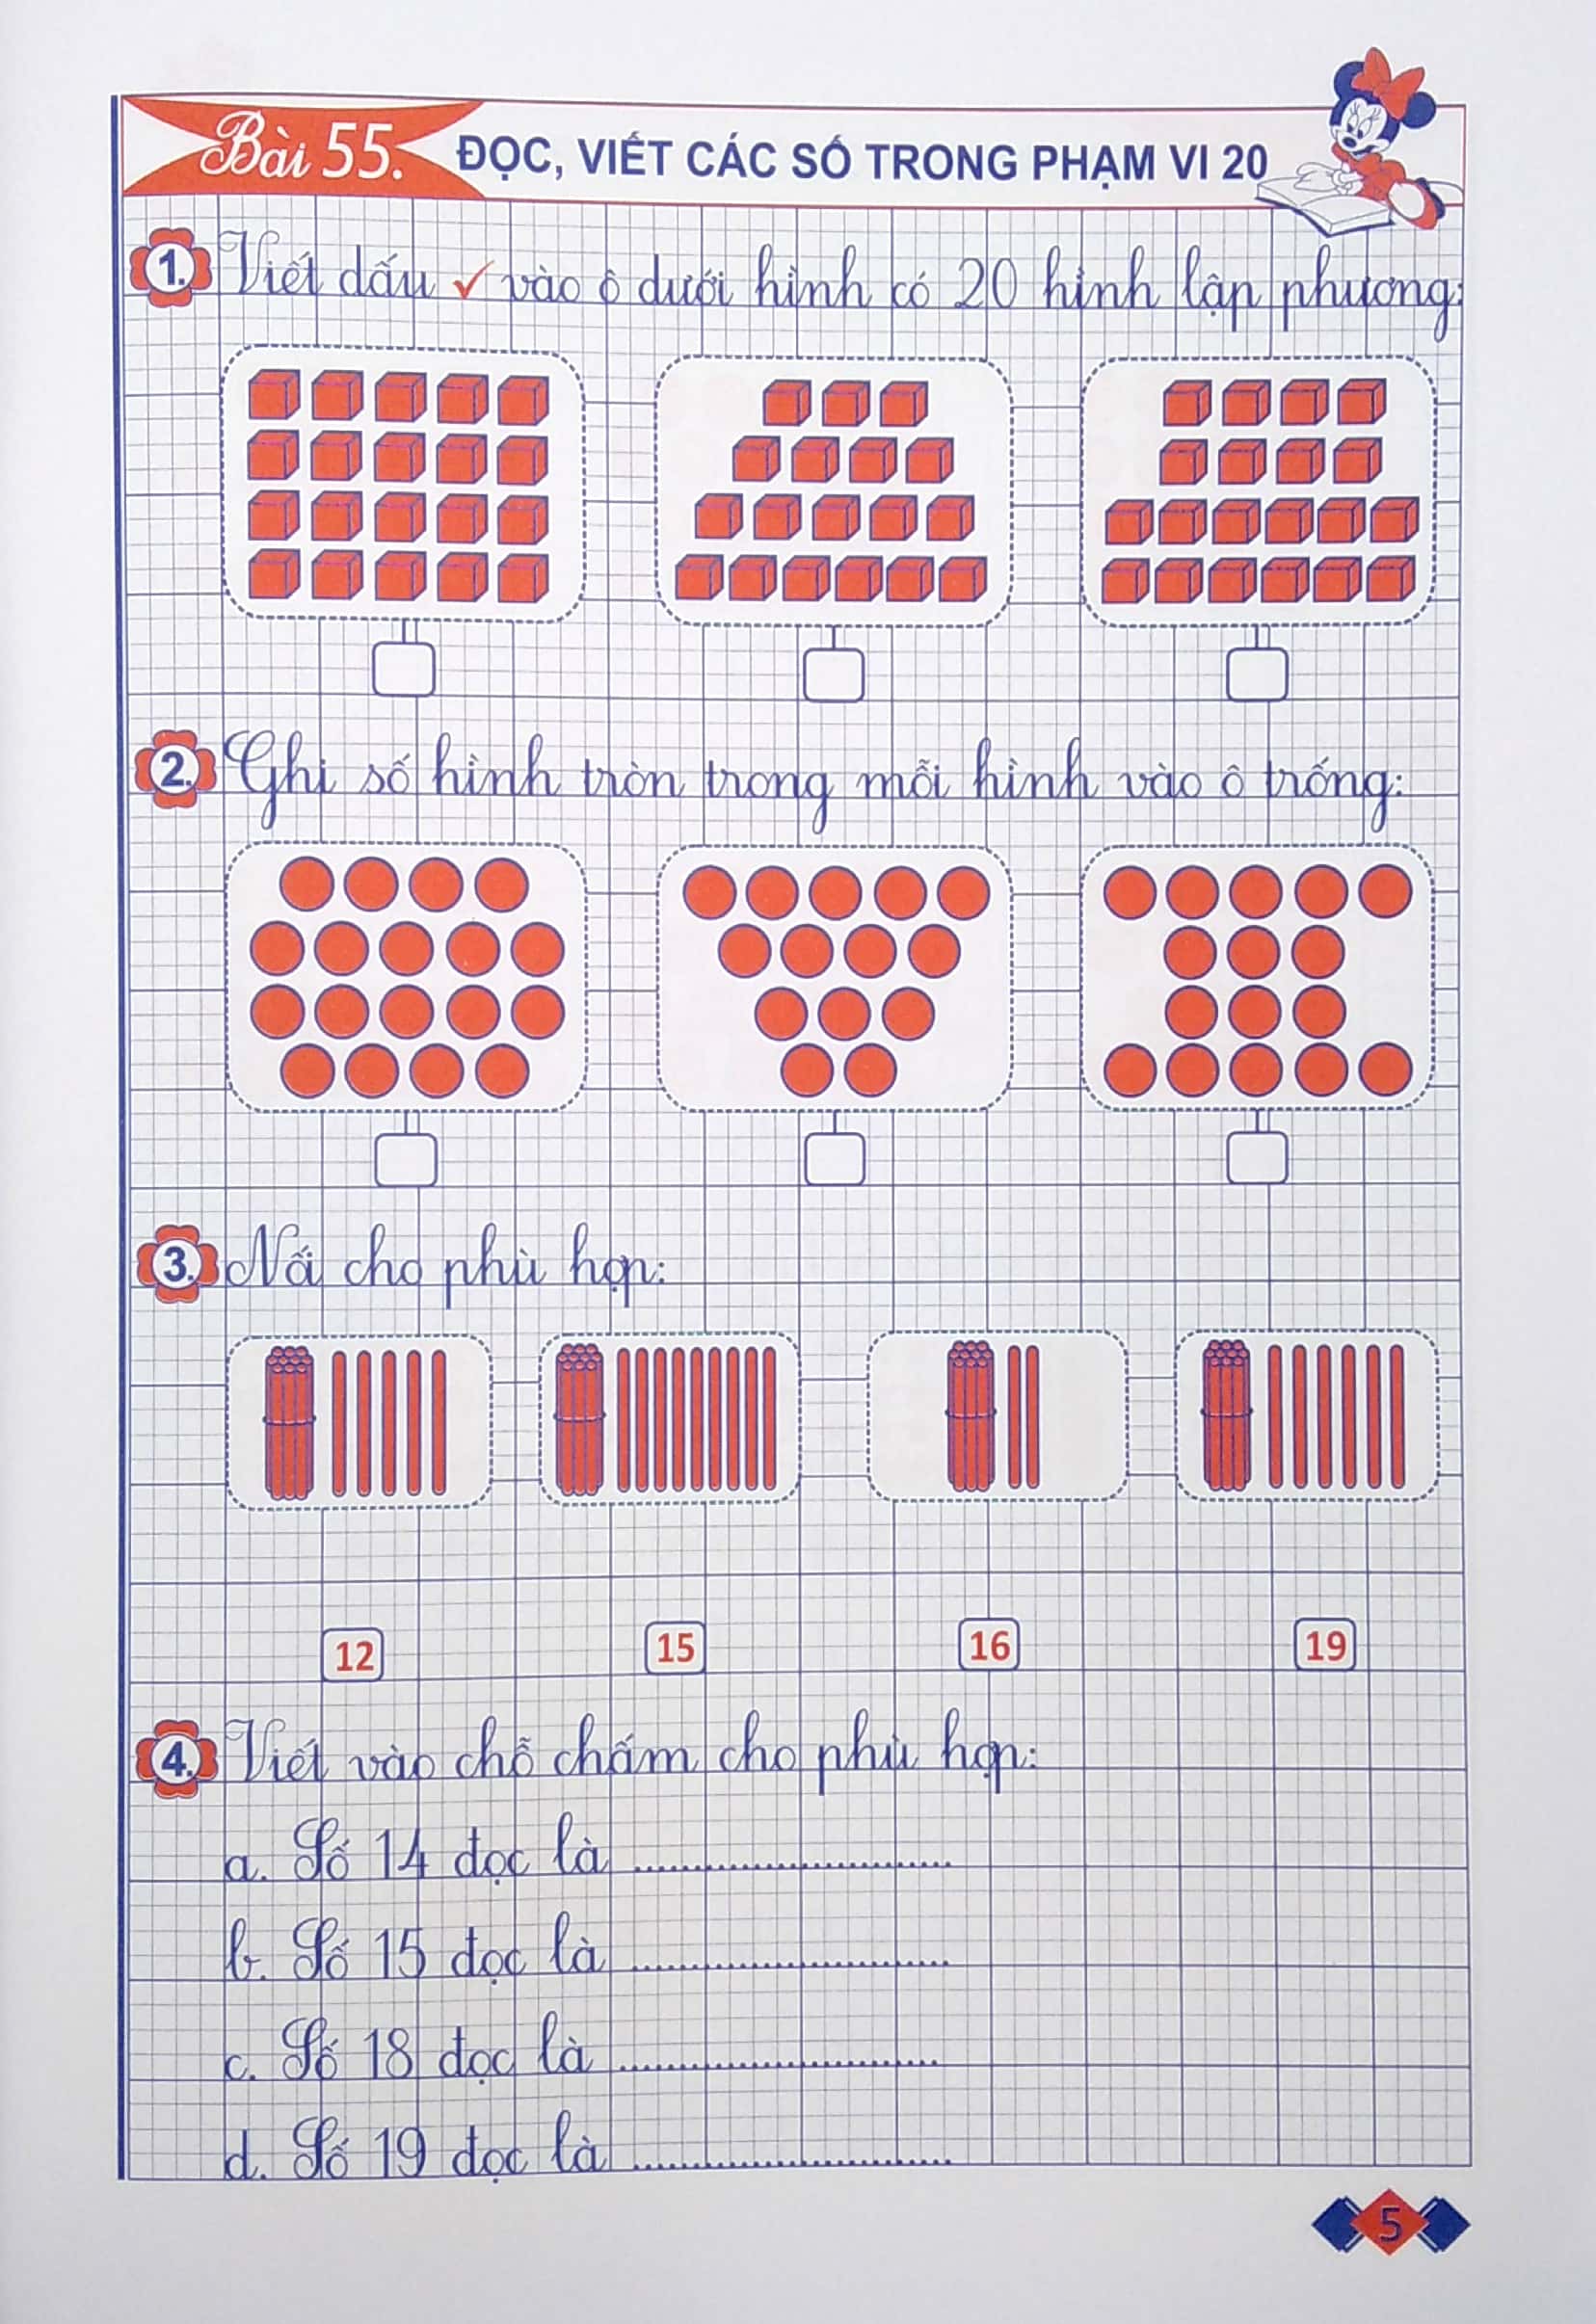 Bài 55. ĐỌC, VIẾT CÁC SỐ TRONG PHẠM VI 20
1. Viết dấu ✓ vào ô dưới hình có 20 hình lập phương:
2. Ghi số hình tròn trong mỗi hình vào ô trống:
3. Nối cho phù hợp:
12 15 16 19
4. Viết vào chỗ chấm cho phù hợp:
a. Số 14 đọc là ..............................
b. Số 15 đọc là ..............................
c. Số 18 đọc là ..............................
d. Số 19 đọc là ..............................
5